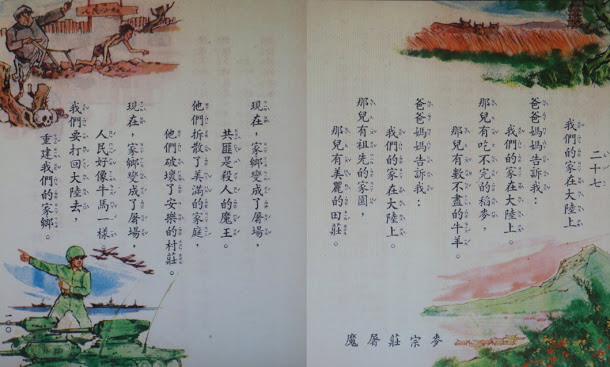 二十七
我們的家在大陸上
爸爸媽媽告訴我：
我們的家在大陸上。
那兒有吃不完的稻麥，
那兒有數不盡的牛羊。
爸爸媽媽告訴我：
我們的家在大陸上。
那兒有祖先的家園，
那兒有美麗的田莊。
麥宗莊屠魔
現在，家鄉變成了屠場，
共匪是殺人的魔王。
他們拆散了美滿的家庭，
他們破壞了安樂的村莊。
現在，家鄉變成了屠場，
人民好像牛馬一樣。
我們要打回大陸去，
重建我們的家鄉。
一〇〇